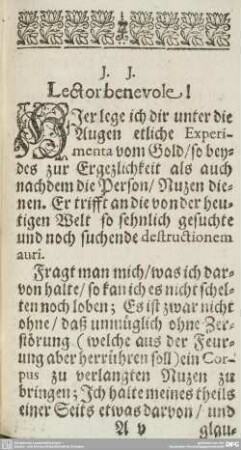 J. J.
Lector benevole!
HIer lege ich dir unter die
Augen etliche Experi-
menta vom Gold/ so bey-
des zur Ergezlichkeit als auch
nachdem die Person/ Nuzen die-
nen. Er trifft an die von der heu-
tigen Welt so sehnlich gesuchte
und noch suchende destructionem
auri.
Fragt man mich/ was ich dar-
von halte/ so kan ich es nicht schel-
ten noch loben; Es ist zwar nicht
ohne/ daß unmüglich ohne Zer-
störung (welche aus der Feur-
ung aber herrühren soll) ein Cor-
pus zu verlangten Nuzen zu
bringen; Ich halte meines theils
einer Seits etwas darvon/ und
A v glau-